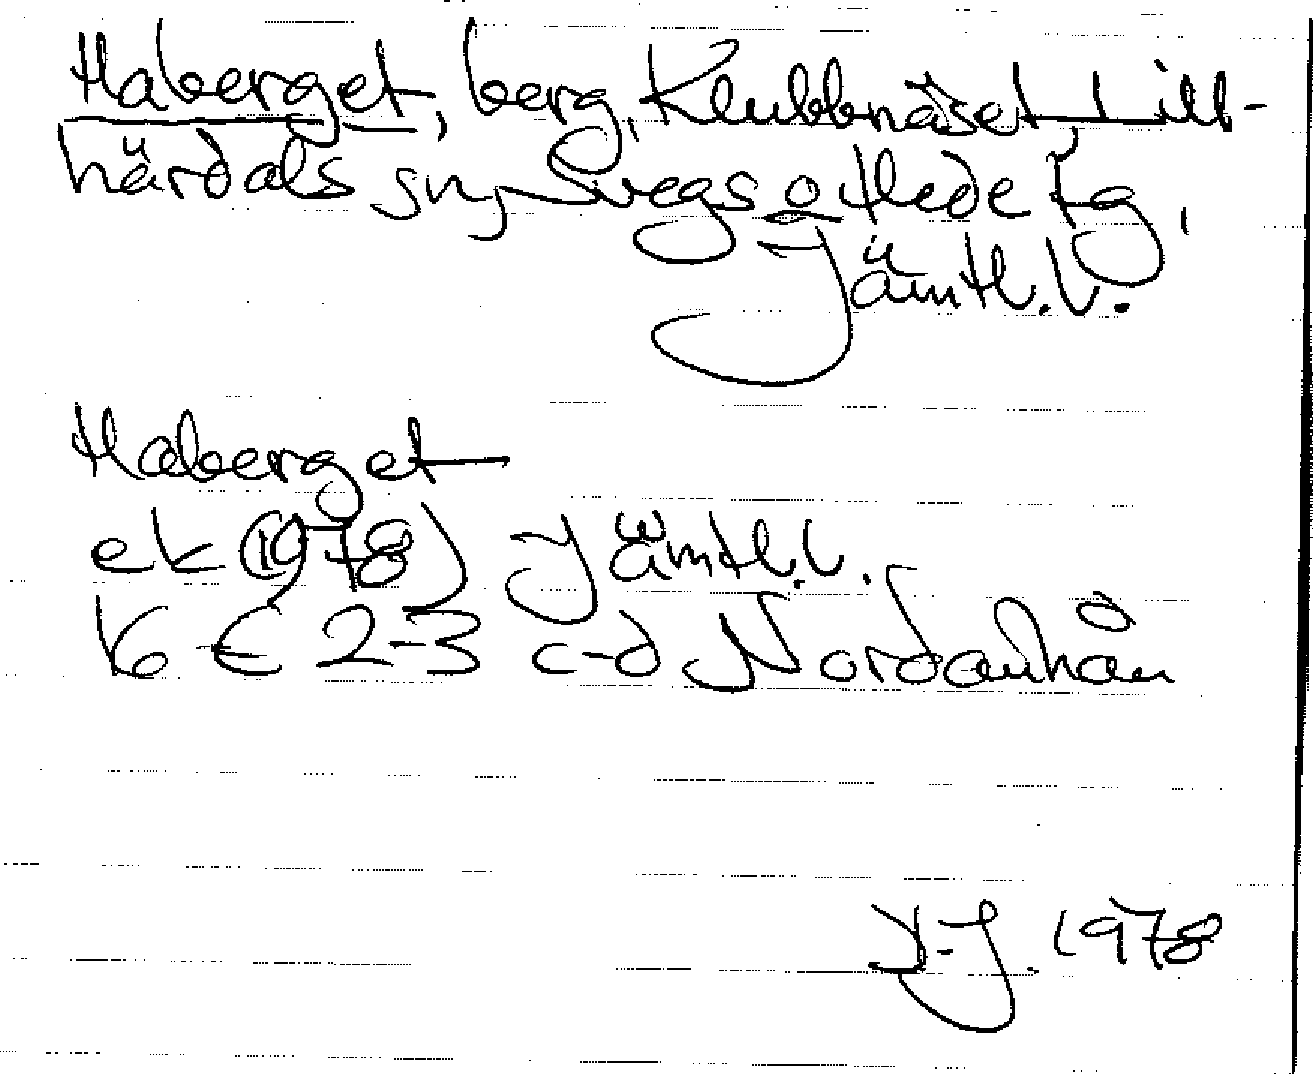 Haberget, berg, Klubbnäset Lill-
härdals sn, Svegs o Hede tg,
Jämtl. l.
Haberget
ek (1978) Jämtl. l.
16 E 2-3 c-d Nordanhån
1978